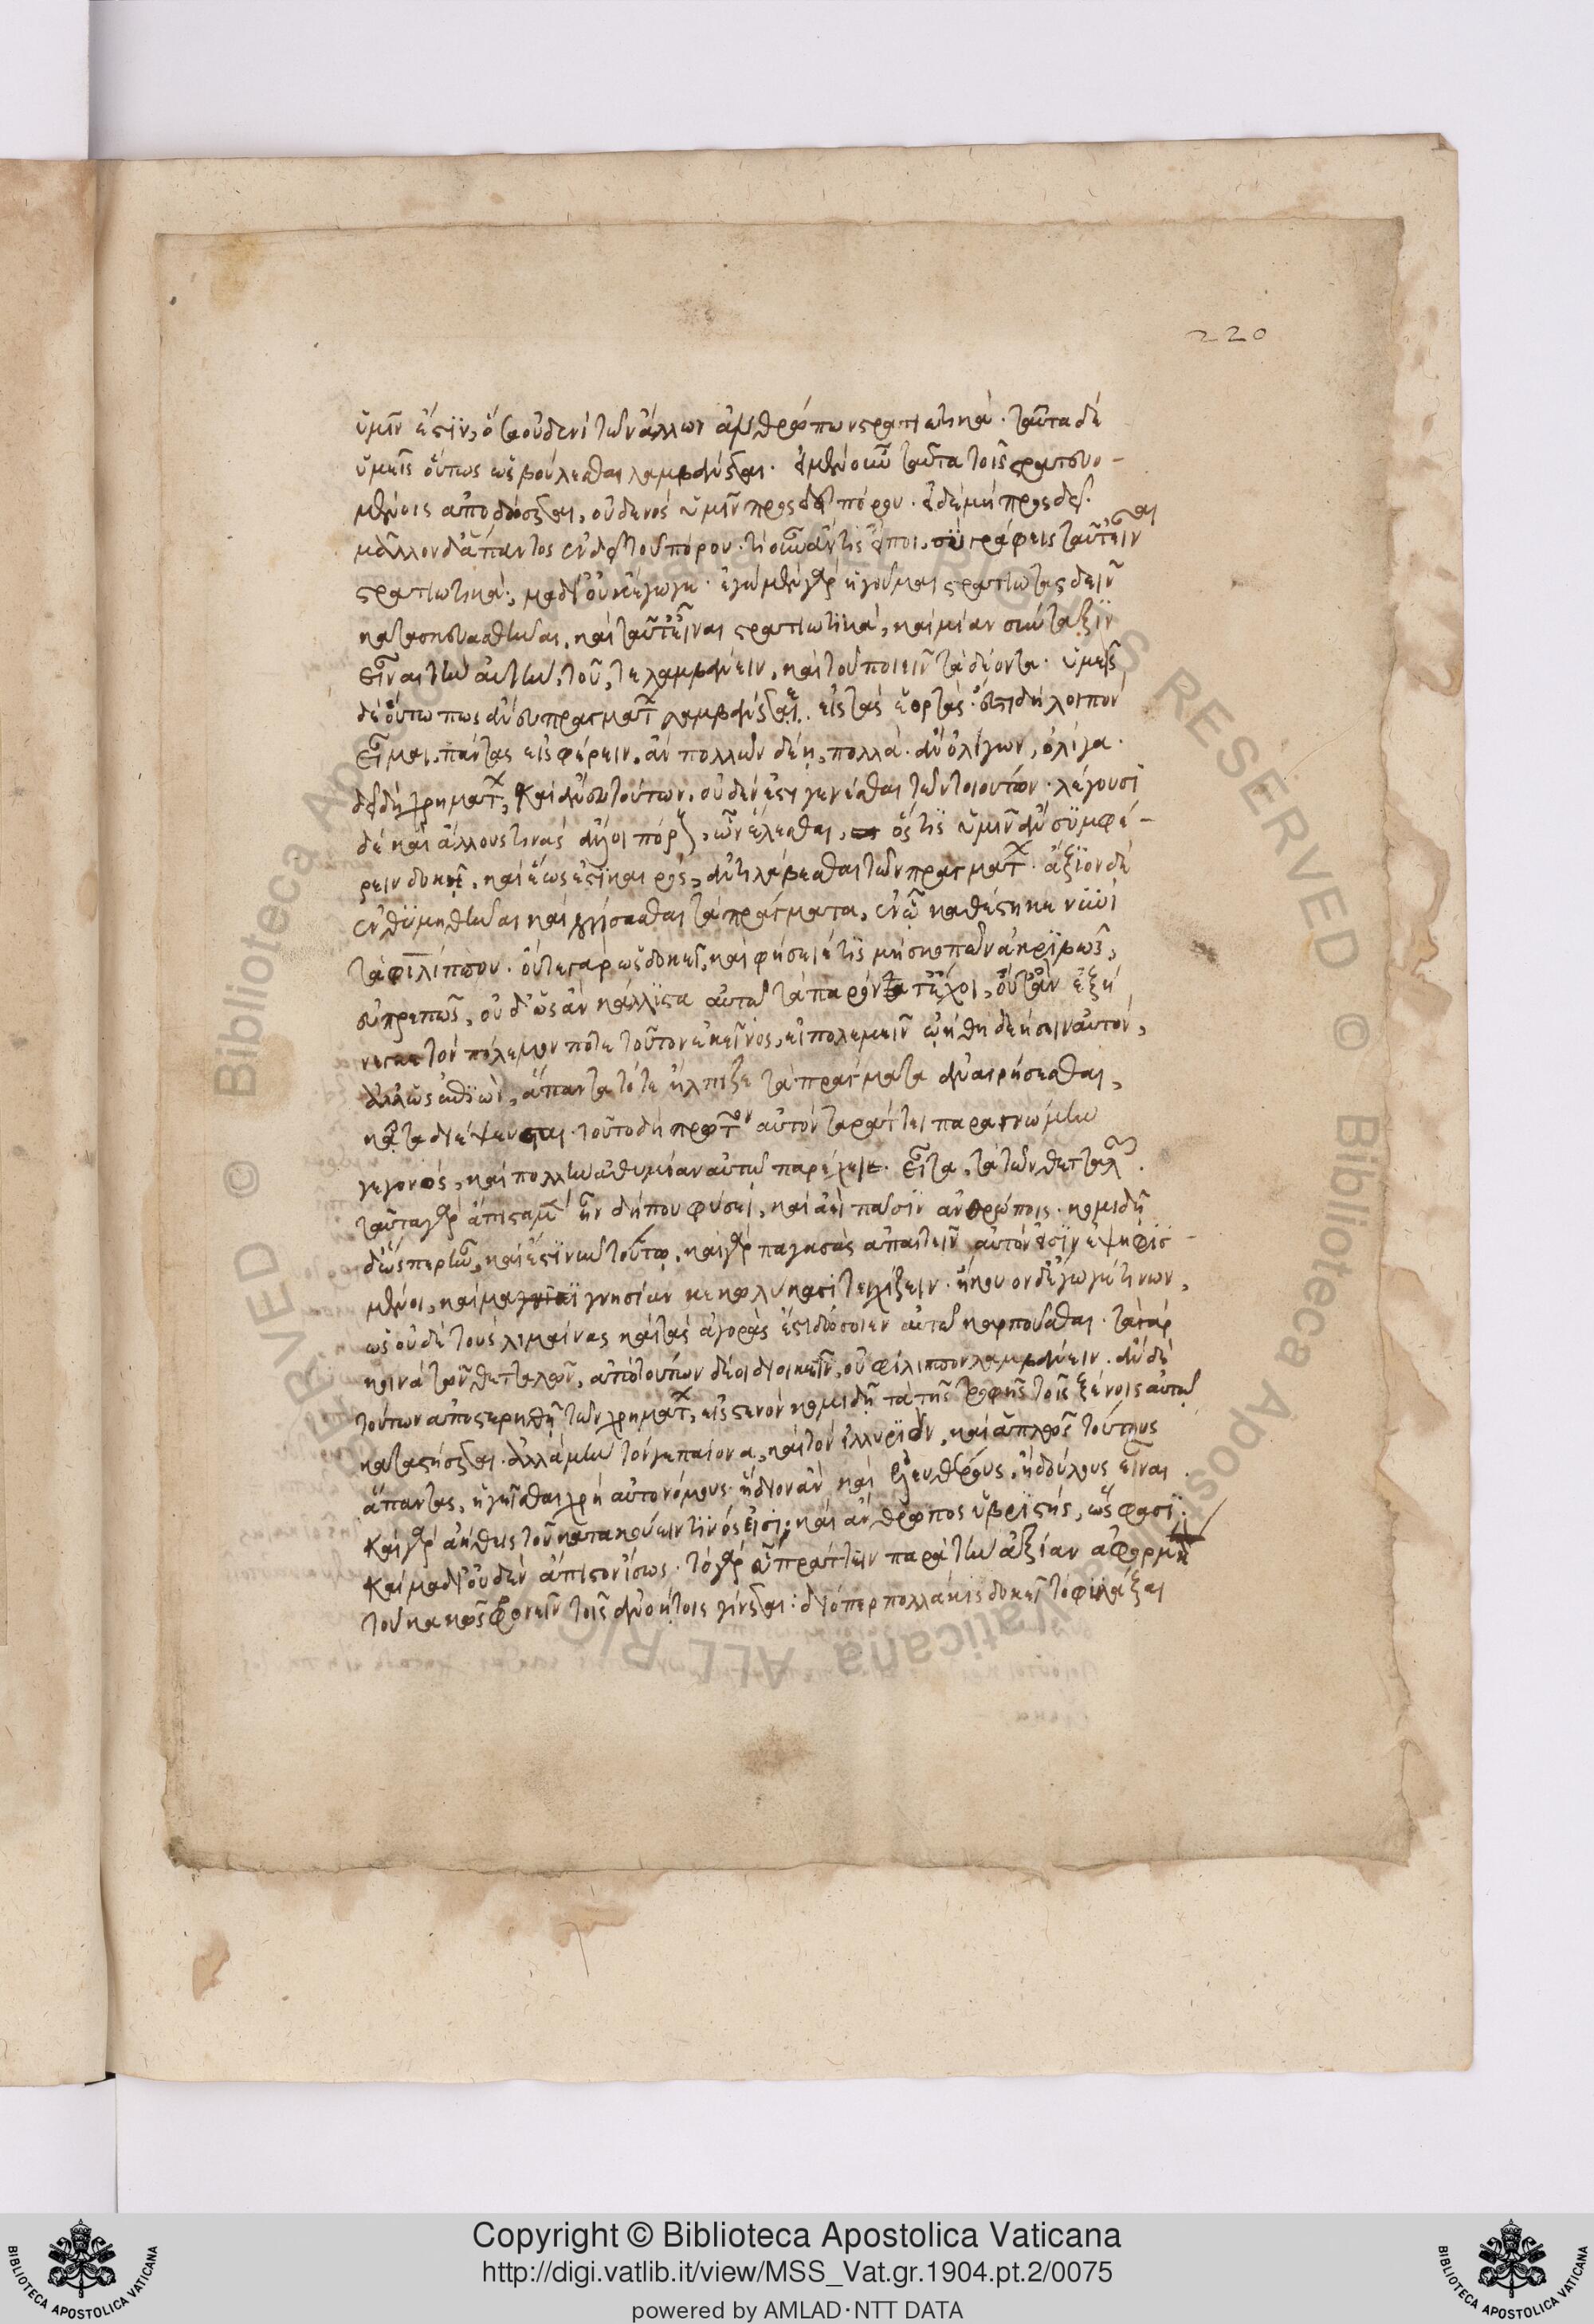 220
ὑμῖν ἐστὶν, ὅσα οὐδενὶ τῶν ἄλλων ἀνθρώπων στρατιωτικά· ταῦτα δὲ
ὑμεῖς οὕτως ὡς βούλεσθαι λαμβάνεται· εἰ μὲν οὖν ταῦτα τοῖς στρατευο-
μένοις ἀποδώσεται, οὐδενὸς ὑμῖν προσδεῖ πόρου· εἰ δὲ μὴ προσδεῖ·
μᾶλλον δ' ἅπαντος ἐνδεῖ τοῦ πόρου· τί οὖν ἄν τις εἴποι, σὺ γράφεις ταῦτ' εἶναι
στρατιωτικά; μὰ Δί' οὐκ ἔγωγε· ἐγὼ μὲν γὰρ ἡγοῦμαι στρατιώτας δεῖν
κατασκευασθῆναι, καὶ ταῦτ' εἶναι στρατιωτικά, καὶ μίαν σύνταξιν
εἶναι τὴν αὐτὴν, τοῦ, τε λαμβάνειν, καὶ τοῦ ποιεῖν τὰ δέοντα· ὑμεῖς
δὲ οὕτω πως ἄνευ πραγμάτων λαμβάνεται εἰς τὰς ἑορτάς· ἔστι δὴ λοιπὸν
εἶμαι, πάντας εἰσφέρειν, ἂν πολλῶν δέῃ, πολλά· ἂν ὀλίγων, ὀλίγα·
δεῖ δὴ χρημάτων, καὶ ἄνευ τούτων, οὐδέν ἐστι γενέσθαι τῶν τοιούτων· λέγουσι
δὲ καὶ ἄλλους τινὰς ἄλλοι πόρους, ὧν ἕλεσθαι, ὅς τις ὑμῖν ἂν συμφέ-
ρειν δοκεῖ, καὶ ἕως ἐστὶ καιρὸς, ἀντιλάβεσθαι τῶν πραγμάτων· ἄξιον δὲ
ἐνθυμηθῆναι καὶ λογίσασθαι τὰ πράγματα, ἐν ᾧ καθέστηκε νυνὶ
τὰ φιλίππου· οὔτε γὰρ ὡς δοκεῖ, καὶ φήσειέ τις μὴ σκοπῶν ἀκριβῶς,
εὐπρεπῶς, οὐδ' ὡς ἂν κάλλιστα αὐτῷ τὰ παρόντα ἔχοι, οὔτ' ἂν ἐξή
νεγκε τὸν πόλεμον ποτὲ τοῦτον ἐκεῖνος, εἰ πολεμεῖν ᾠήθη δεήσειν αὐτὸν,
ἀλλ' ὡς ἐπιὼν, ἅπαντα τότε ἤλπιζε τὰ πράγματα ἀναιρήσεσθαι,
κᾆτα διέψευσται· τοῦτο δὴ πρῶτον αὐτὸν ταράττει παρὰ γνώμην
γεγονὸς, καὶ πολλὴν ἀθυμίαν αὐτῷ παρέχει· εἶτα, τὰ τῶν θετταλῶν·
ταῦτα γὰρ ἄπιστα μὲν ἦν δήπου φύσει, καὶ ἀεὶ πᾶσιν ἀνθρώποις· κομιδῇ
δ' ὥσπερ ἦν, καὶ ἔστι νῦν τούτῳ, καὶ γὰρ παγασὰς ἀπαιτεῖν αὐτόν εἰσιν ἐψηφισ-
μένοι, καὶ μαγνησίαν κεκωλύκασι τειχίζειν· ἤκουον δ' ἔγωγέ τινων,
ὡς οὐδὲ τοὺς λιμαίνας καὶ τὰς ἀγορὰς ἔτι δώσοιεν αὐτῷ καρποῦσθαι· τὰ γὰρ
κοινὰ τῶν θετταλῶν, ἀπὸ τούτων δέοι διοικεῖν, οὐ φίλιππον λαμβάνειν· ἂν δὲ
τούτων ἀποστερηθῇ τῶν χρημάτων, εἰς στενὸν κομιδῇ τὰ τῆς τροφῆς τοῖς ξένοις αὐτῷ
καταστήσεται· ἀλλὰ μὴν τόν γε παίονα, καὶ τὸν ἰλλυριὸν, καὶ ἁπλῶς τούτους
ἅπαντας, ἡγεῖσθαι χρὴ αὐτονόμους ἥδιον ἂν καὶ ἐλευθέρους, ἢ δούλους εἶναι·
καὶ γὰρ ἀήθεις τοῦ κατακούειν τινός εἰσι· καὶ ἄνθρωπος ὑβριστὴς, ὥς φασι·
καὶ μὰ Δί' οὐδὲν ἄπιστον ἴσως· τὸ γὰρ εὖ πράττειν παρὰ τὴν ἀξίαν ἀφορμὴ
τοῦ κακῶς φρονεῖν τοῖς ἀνοήτοις γίνεται· διόπερ πολλάκις δοκεῖ τὸ φυλάξαι
Copyright © Biblioteca Apostolica Vaticana
http://digi.vatlib.it/view/MSS_Vat.gr.1904.pt.2/0075
powered by AMLAD·NTT DATA